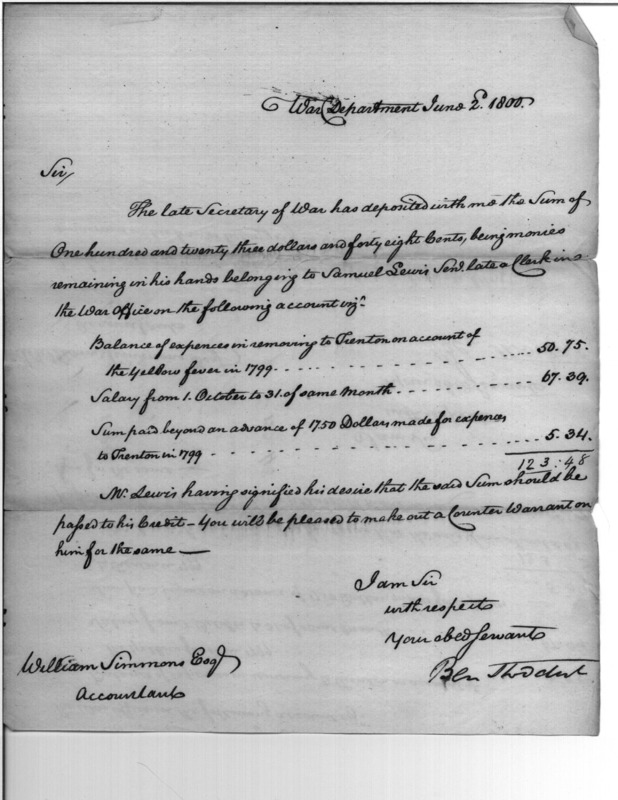 War Department June 2d. 1800.
Sir,
The late Secretary of War has deposited with me the Sum of
One hundred and twenty three dollars and forty eight Cents, being monies
remaining in his hands belonging to Samuel Lewis Senr. late a Clerk in
the War Office on the following account vizt.
Balance of expences in removing to Trenton on account of
the Yellow fever in 1799. 50.75.
Salary from 1. October to 31. of same Month 67.39.
Sum paid beyond an advance of 1750 Dollars made for expences
to Trenton in 1799 5.34.
123:48
Mr. Lewis having signified his desire that the said Sum should be
passed to his Credit - You will be pleased to make out a Counter Warrant on
him for the same —
I am Sir
with respect
Your obed Servant
Ben Stoddert
William Simmons Esqr
Accountant